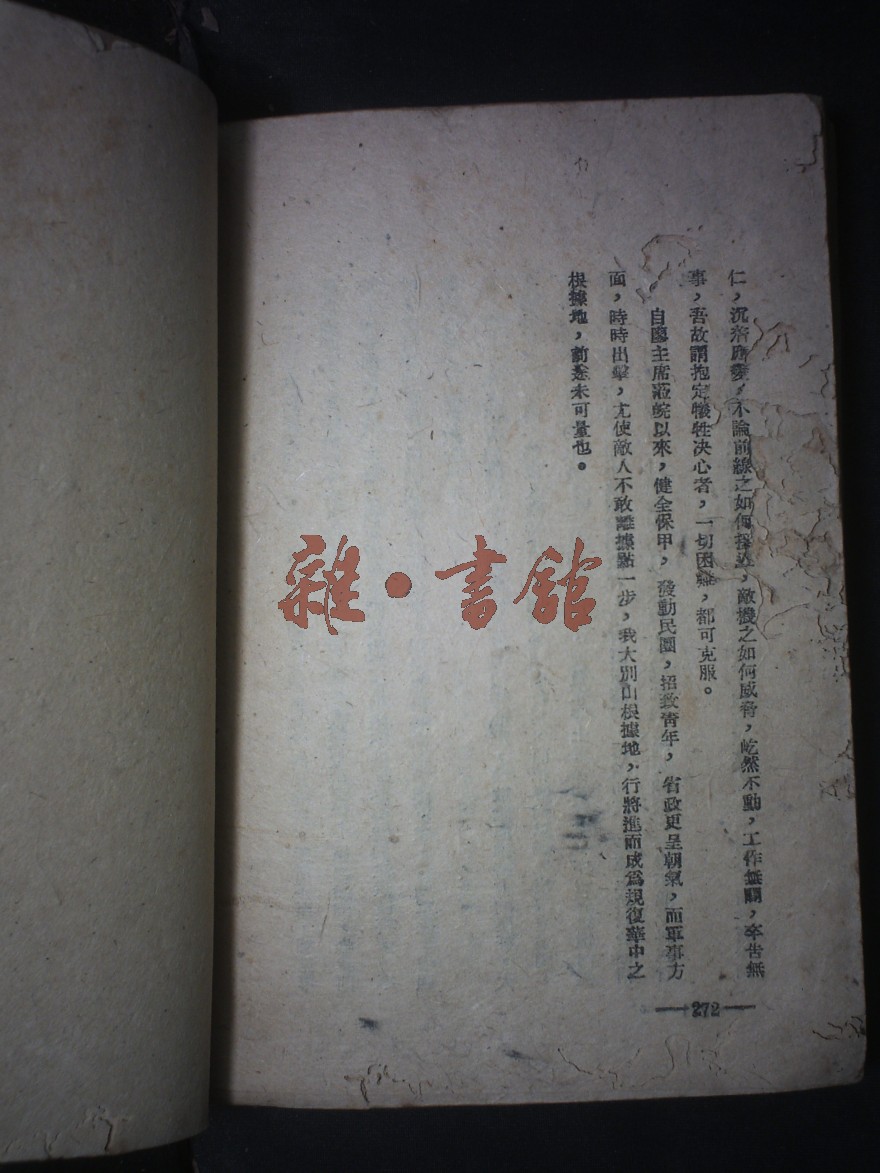 仁，沉着應變，不論前線之如何接近，敵機之如何威脅，屹然不動，工作無間，卒告無
事，吾故謂抱定犧牲決心者，一切困難，都可克服。
自廖主席蒞皖以來，健全保甲，發動民團，招致青年，省政更呈朝氣，而軍事方
面，時時出擊，尤使敵人不敢離據點一步，我大別山根據地，行將進而成爲規復華中之
根據地，前途未可量也。
272
雜·書館